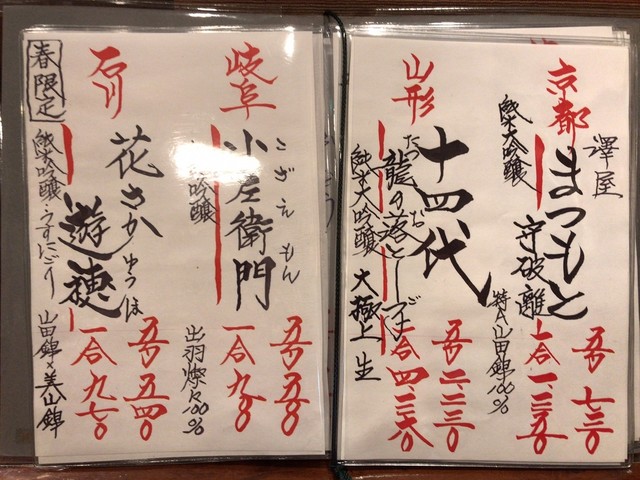 京都
澤屋
まつもと
守破離
純米大吟醸
特A山田錦100%
五勺 七三〇
一合 一、三五〇
山形
十四代
たつ
龍の落とし子
お
ご
純米大吟醸 大極上 生
五勺 二二三〇
一合 四二六〇
岐阜
小左衛門
こざえもん
吟醸
出羽燦々100%
五勺 五五〇
一合 九八〇
石川
花さか
遊穂
ゆうほ
春限定
純米吟醸・うすにごり
山田錦×美山錦
五勺 五四〇
一合 九七〇